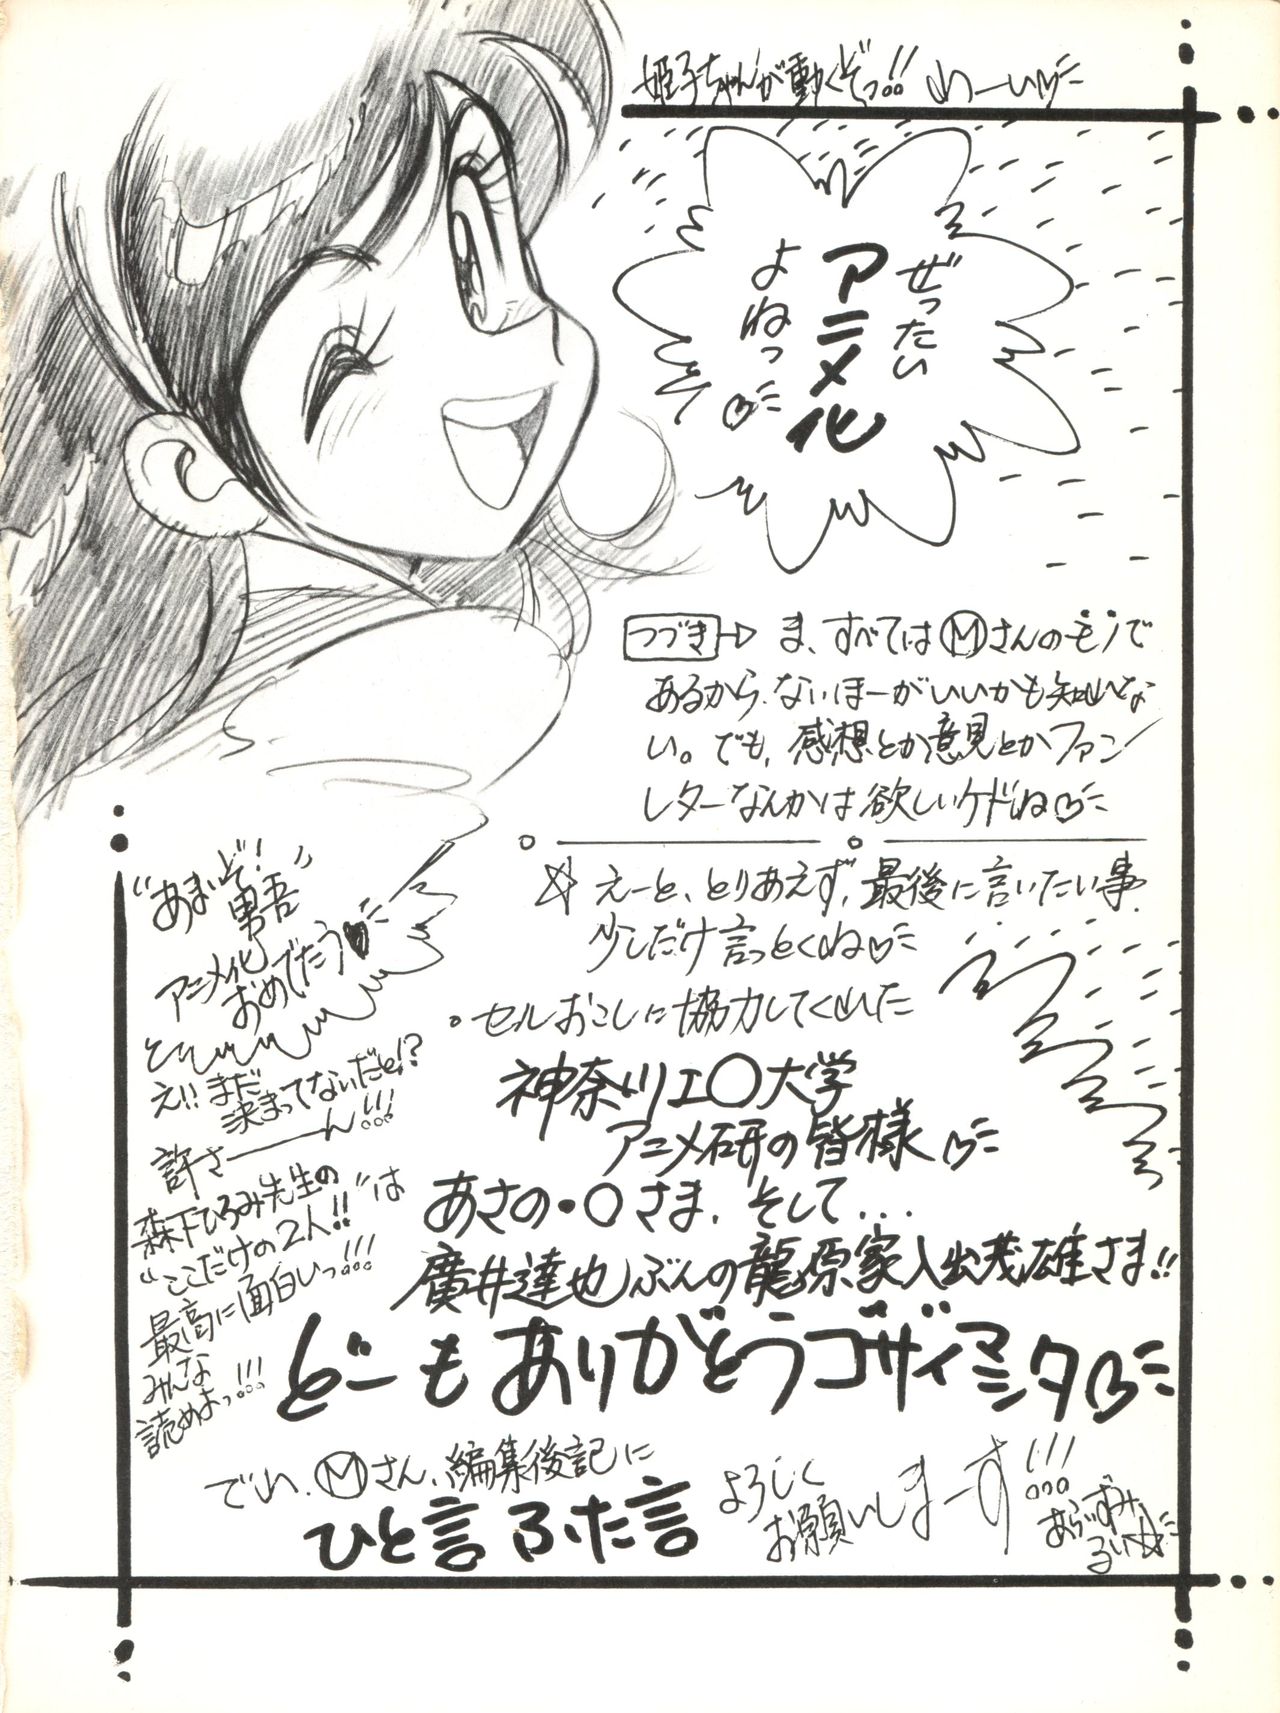 姫子ちゃんが動くぞっ!! わーい♡
ぜったい
アニメ化
よねっ♡
つづき→ ま、すべてはⓂさんのモノで
あるから、ないほーがいいかも知れな
い。でも、感想とか意見とかファン
レターなんかは欲しいケドね♡
☆ えーと、とりあえず、最後に言いたい事
少しだけ言っとくね♡
。セルおこしに協力してくれた
神奈ツエ〇大学
アニメ研の皆様♡
あさの・〇さま、そして...
廣井達也ぶんの龍原家入出茂雄さま!!
どーもありがとうゴザイマシタ♡
"あまいぞ!
男吾"
アニメ化
おめでたう♥
え!! まだ
決まってないだと!?
許さーーん!!!
森下ひろみ先生の
"ここだけの2人!!"は
最高に面白いっ!!!
みんな
読めよっ!!!
でわ、Ⓜさん、編集後記に
ひと言ふた言
よろしく
お願いしまーす!!!
あらいずみ
るい☆